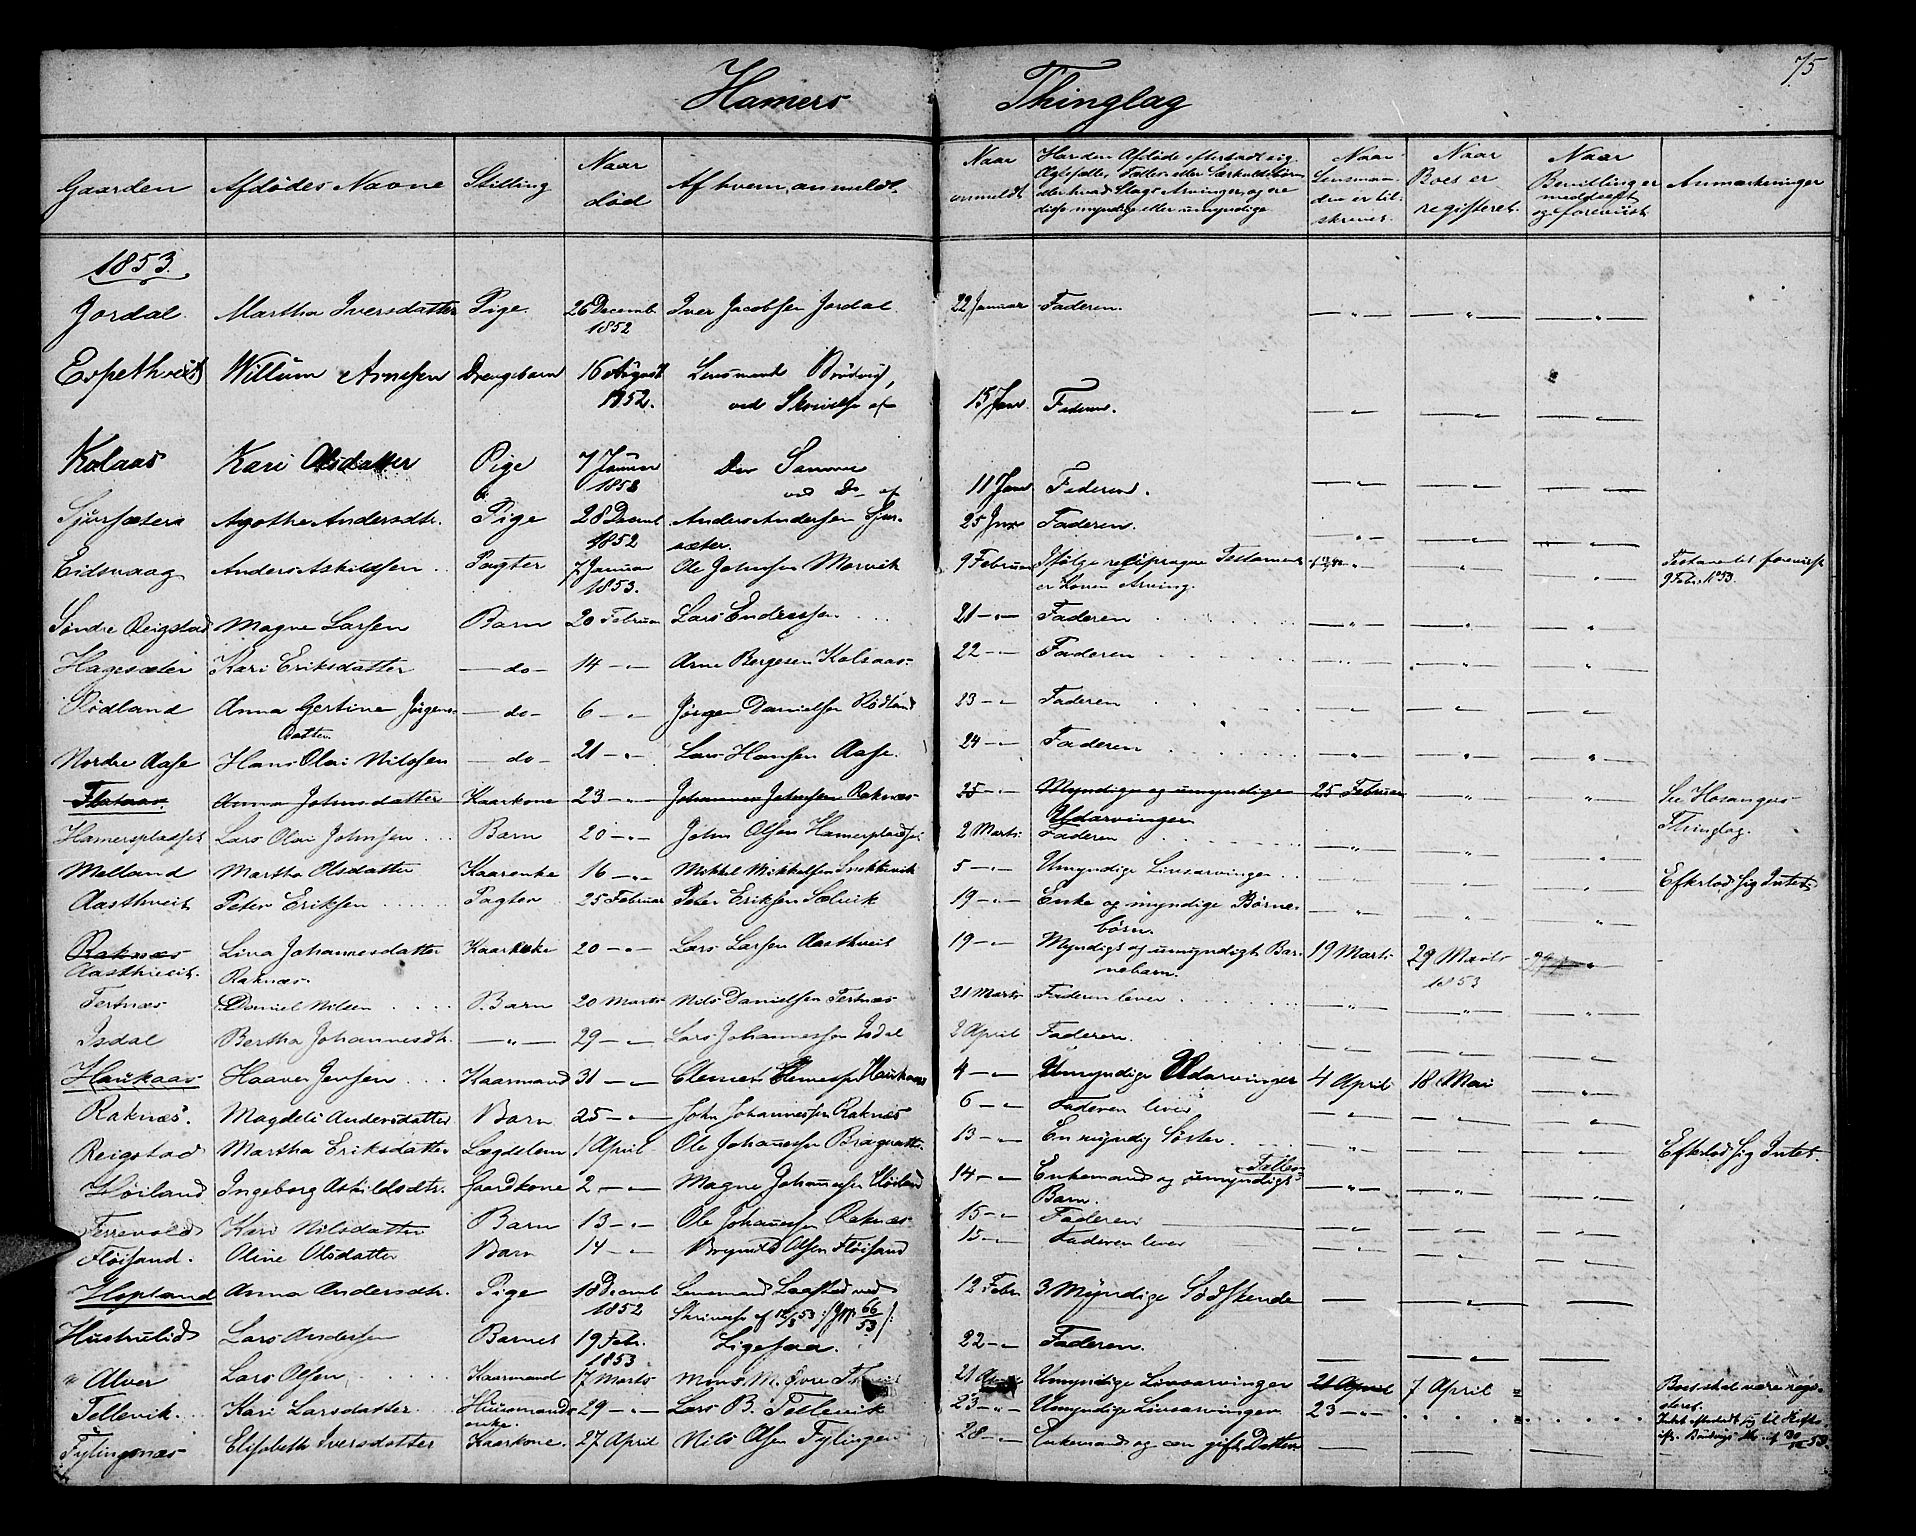 Hamers Thinglag 75
Gaarden Afdødes Navne Stilling Naar død Af hvem anmeldt. Naar anmeldt Har den Afdøde efterladt sig Ægtefælle, Fælles eller Særkuldsbørn eller hvad Slags Arvinger, og ere disse myndige eller umyndige Naar Lensmanden er tilskrevet. Naar Boet er registeret. Naar Bevilling er meddeelt og foreviist Anmærkninger
1853.
Jordal. Martha Iversdatter Pige. 26 Decemb. 1852 Iver Jacobsen Jordal. 22 Januar Faderen. — " — — " — — " —
Espethveit Willum Arnesen Drengebarn 16 August 1852. Lensmand Brødvig, ved Skrivelse af 15 Jan. Faderen. — " — — " — — " —
Kolaas Kari Olsdatter Pige 7 Januar 185 Den Samme ved Do af 11 Jan Faderen. — " — — " — — " —
Sjursæter Agathe Andersdtr. Pige 28 Decemb 1852 Anders Andersen Sjursæter. 25 Jan Faderen. — " — — " — — " —
Eidsvaag Anders Askildsen Pagter 7 Januar 1853. Ole Johnsen Morvik 9 Februar Ifølge Testament er Konen Arving. — " — — " — Testamentet foreviist 9 Febr. 1853.
Søndre Reigstad Magne Larsen Barn 20 Februar Lars Endresen 21 — " — Faderen — " — — " — — " —
Hagesæter Kari Eriksdatter — do — 14 — " — Arne Bergesen Kolaas 22 — " — Faderen — " — — " — — " —
Rødland Anna Gertine Jørgensdatter — do — 6 — " — Jørgen Danielsen Rødland 23 — " — Faderen — " — — " — — " —
Nordre Aase Hans Olai Nilssen — do — 21 — " — Lars Hansen Aase. 24 — " — Faderen — " — — " — — " —
Flataas Anna Johnsdatter Kaarkone 23 — " — Johannes Johnsen Raknæs 25 — " — Myndige og umyndige Udarvinger 25 Februar — " — — " — See Hosangers Thinglag.
Hamerspladset Lars Olai Johnsen Barn 20 — " — John Olsen Hamerspladset 2 Marts Faderen — " — — " — — " —
Melland Martha Olsdatter Kaarenke 16 — " — Mikkel Mikkelsen Snekkevik 5 — " — Umyndige Livsarvinger — " — — " — — " — Efterlod sig Intet
Aasthveit Peter Eriksen Pagter 25 Februar Peter Eriksen Sælvik 19 — " — Enke og myndige Børnebørn. — " — — " — — " —
Raknæs Aasthveit. Lina Johannesdatter Raknæs Kaarenke 20 — " — Lars Larsen Aasthveit 19 — " — Myndigt og umyndigt Barnebarn. 19 Marts 29 Marts 1853 — " —
Tertnæs Daniel Nilsen Barn 20 Marts Nils Danielsen Tertnæs 21 Marts Faderen lever — " — — " — — " —
Isdal Bertha Johannesdtr. — " — 29 — " — Lars Johannessen Isdal 2 April Faderen. — " — — " — — " —
Haukaas Haaver Jensen Kaarmand 31 — " — Clemet Clemetsen Haukaas 4 — " — Umyndige Udarvinger 4 April 18 Mai — " —
Raknæs. Magdeli Andersdatter Barn 25 — " — John Johannessen Raknæs 6 — " — Faderen lever — " — — " — — " —
Reigstad Martha Eriksdatter Lægdslem 1 April Ole Johannessen 13 — " — En myndig Søster. — " — — " — — " — Efterlod sig Intet.
Høiland Ingeborg Askildsdtr. Gaardkone 2 — " — Magne Johannessen Høiland 14 — " — Enkemand og umyndigt Fælles Barn. — " — — " — — " —
Kari Nilsdatter Barn 13 — " — Ole Johannessen Raknæs 15 — " — Faderen — " — — " — — " —
Fløisand. Oline Olsdatter Barn 14 — " — Brynild Olsen Fløisand 15 — " — Faderen lever — " — — " — — " —
Hopland Anna Andersdtr. Pige 18 Decemb 1852 Lensmand Laastad ved Skrivelse af 12/2 53 :/ 66/53 /: 12 Febr 3 Myndige Sødskende — — " — — " —
Hustrulid Lars Andersen Barnet 19 Febr. 1853 Ligesaa. 22 — " — Faderen. — — " — — " —
" Alver Lars Olsen Kaarmand 17 Marts Mons M. Øvre 21 Umyndige Livsarvinger 21 April 7 April = Boet skal være registeret.
Tellevik. Kari Larsdatter Huusmandsenke. 29 — " — Lars B. Tellevik 23 — " — Umyndige Livsarvinger 23 — " —
Fylingsnæs Elisabeth Iversdatter Kaarkone. 27 April Nils Olsen Fylingen 28 — " — Enkemand og een gift Datter — — " — — " —